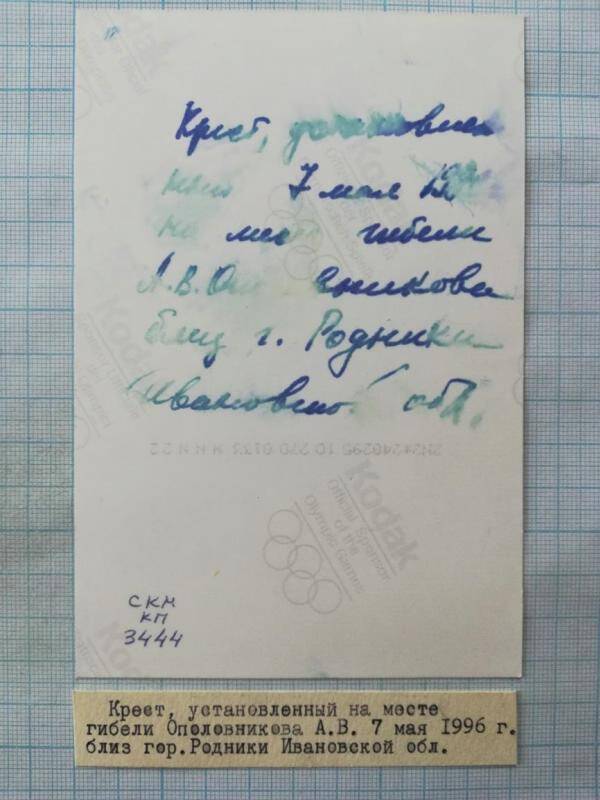 Крест, установлен
7 мая 199
на мес гибели
А.В.Оп вникова
близ г. Родники
Ивановской обл.
Kodak
Official Sponsor
of the
Olympic Games
СКМ
КП
3444
Крест, установленный на месте
гибели Ополовникова А.В. 7 мая 1996 г.
близ гор.Родники Ивановской обл.